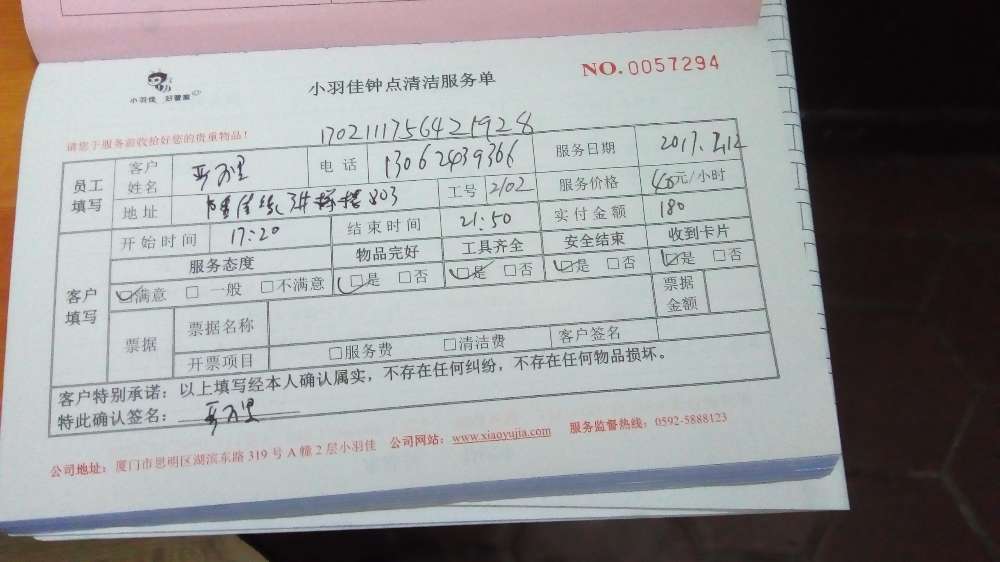 小羽佳 好管家
小羽佳钟点清洁服务单
NO. 0057294
请您于服务前收拾好您的贵重物品！
1702111756421928
员工填写 客户姓名 电话 13062439366 服务日期 2017.2.12
地址 803 工号 2102 服务价格 40元/小时
客户填写 开始时间 17:20 结束时间 21:50 实付金额 180
服务态度 物品完好 工具齐全 安全结束 收到卡片
☑满意 □一般 □不满意 ☑是 □否 ☑是 □否 ☑是 □否 ☑是 □否
票据 票据名称 票据金额
开票项目 □服务费 □清洁费 客户签名
客户特别承诺：以上填写经本人确认属实，不存在任何纠纷，不存在任何物品损坏。
特此确认签名：
公司地址：厦门市思明区湖滨东路 319 号 A 幢 2 层小羽佳 公司网站：www.xiaoyujia.com 服务监督热线：0592-5888123